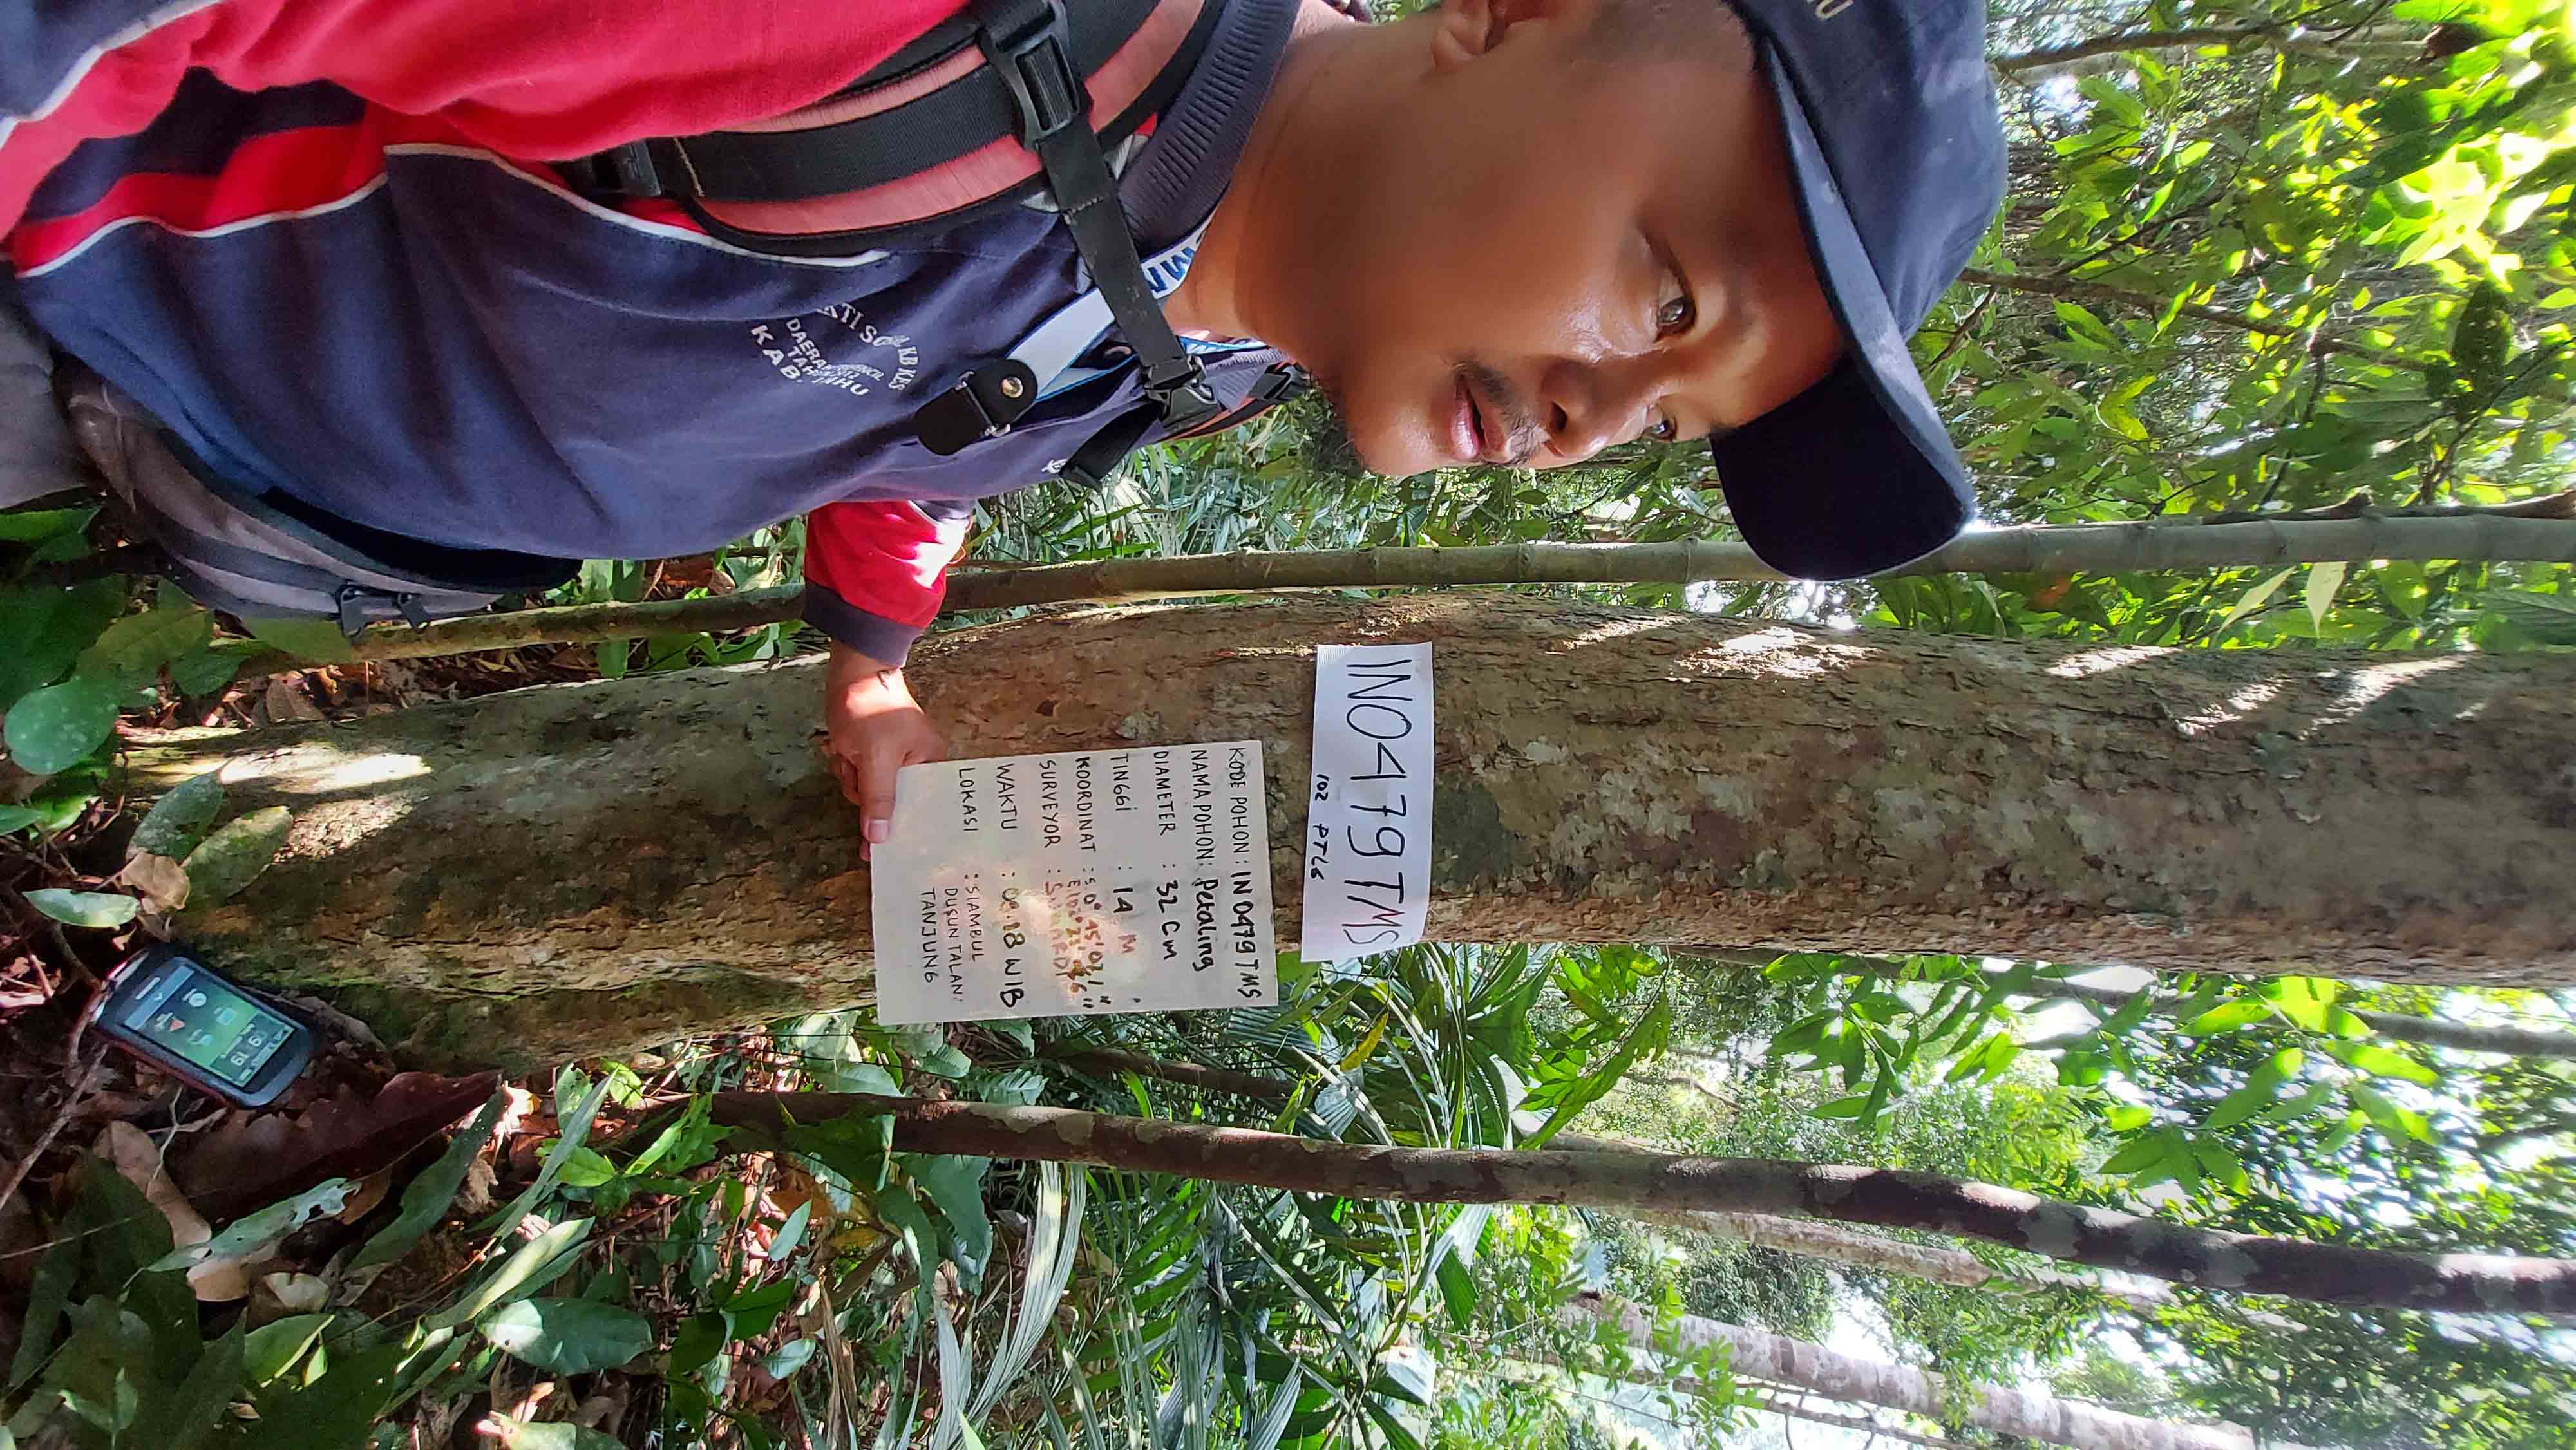 IN0479TMS
102 PTLG
KODE POHON : IN0479TMS
NAMA POHON : Petaling
DIAMETER : 32 CM
TINGGI : 14 M
KOORDINAT : S 0° 45'
SURVEYOR
WAKTU : 09.18 WIB
LOKASI : SIAMBUL
DUSUN TALAN
TANJUNG
DAERAH
KAB.